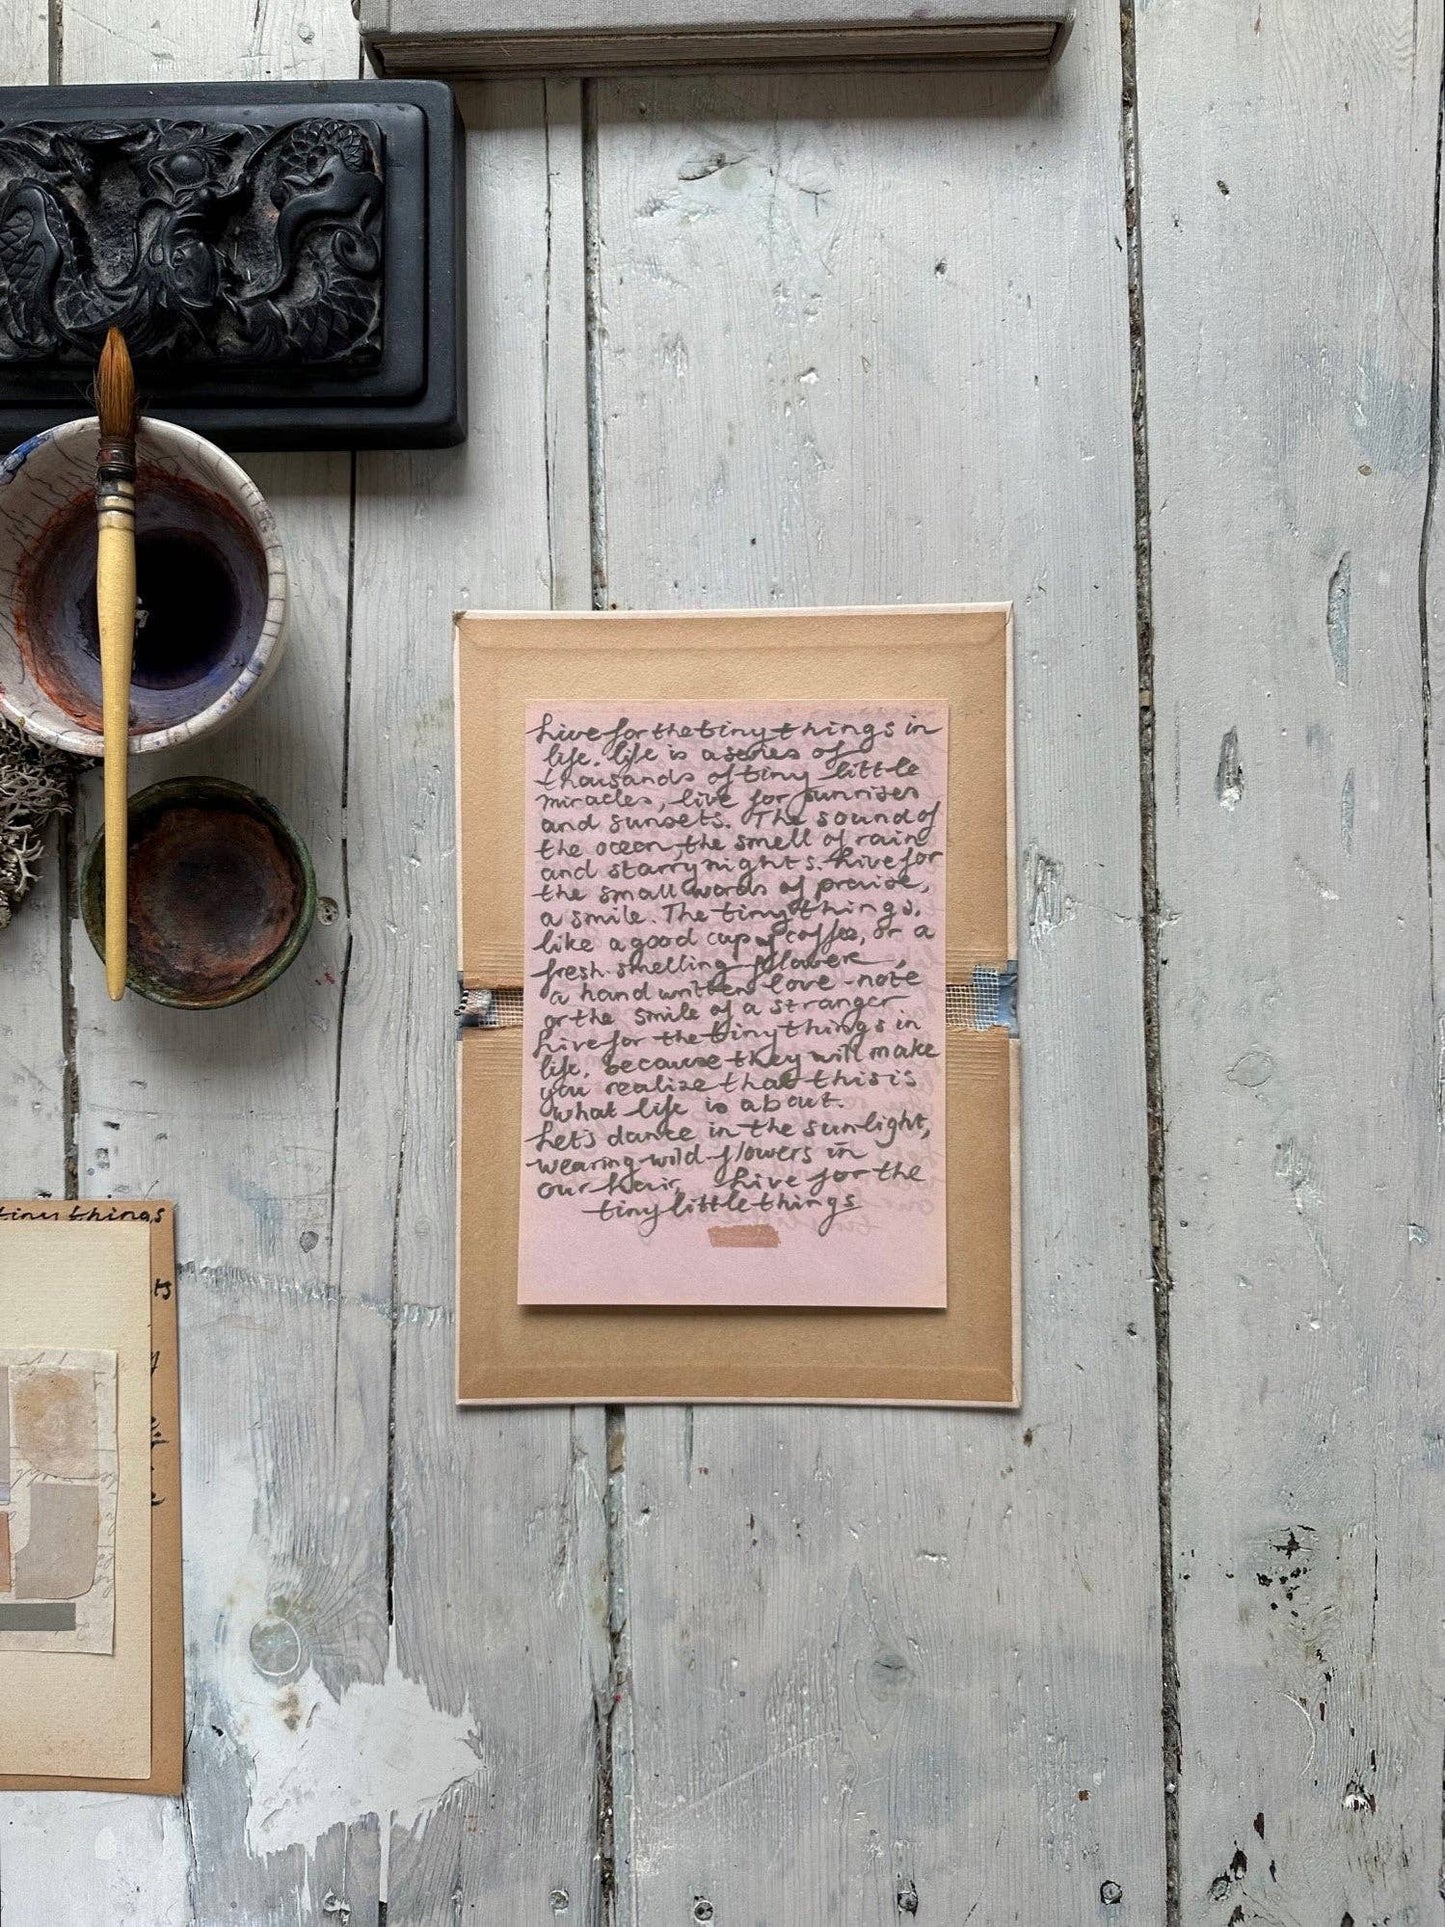 Live for the tiny things in
life. life is a series of
thousands of tiny little
miracles, live for sunrises
and sunsets. The sound of
the ocean, the smell of rain
and starry nights. Live for
the small words of praise,
a smile. The tiny things,
like a good cup of coffee, or a
fresh smelling flower,
a hand written love-note
or the smile of a stranger
Live for the tiny things in
life, because they will make
you realize that this is
what life is about.
Let's dance in the sunlight,
wearing wild flowers in
our hair, Live for the
tiny little things
tiny things